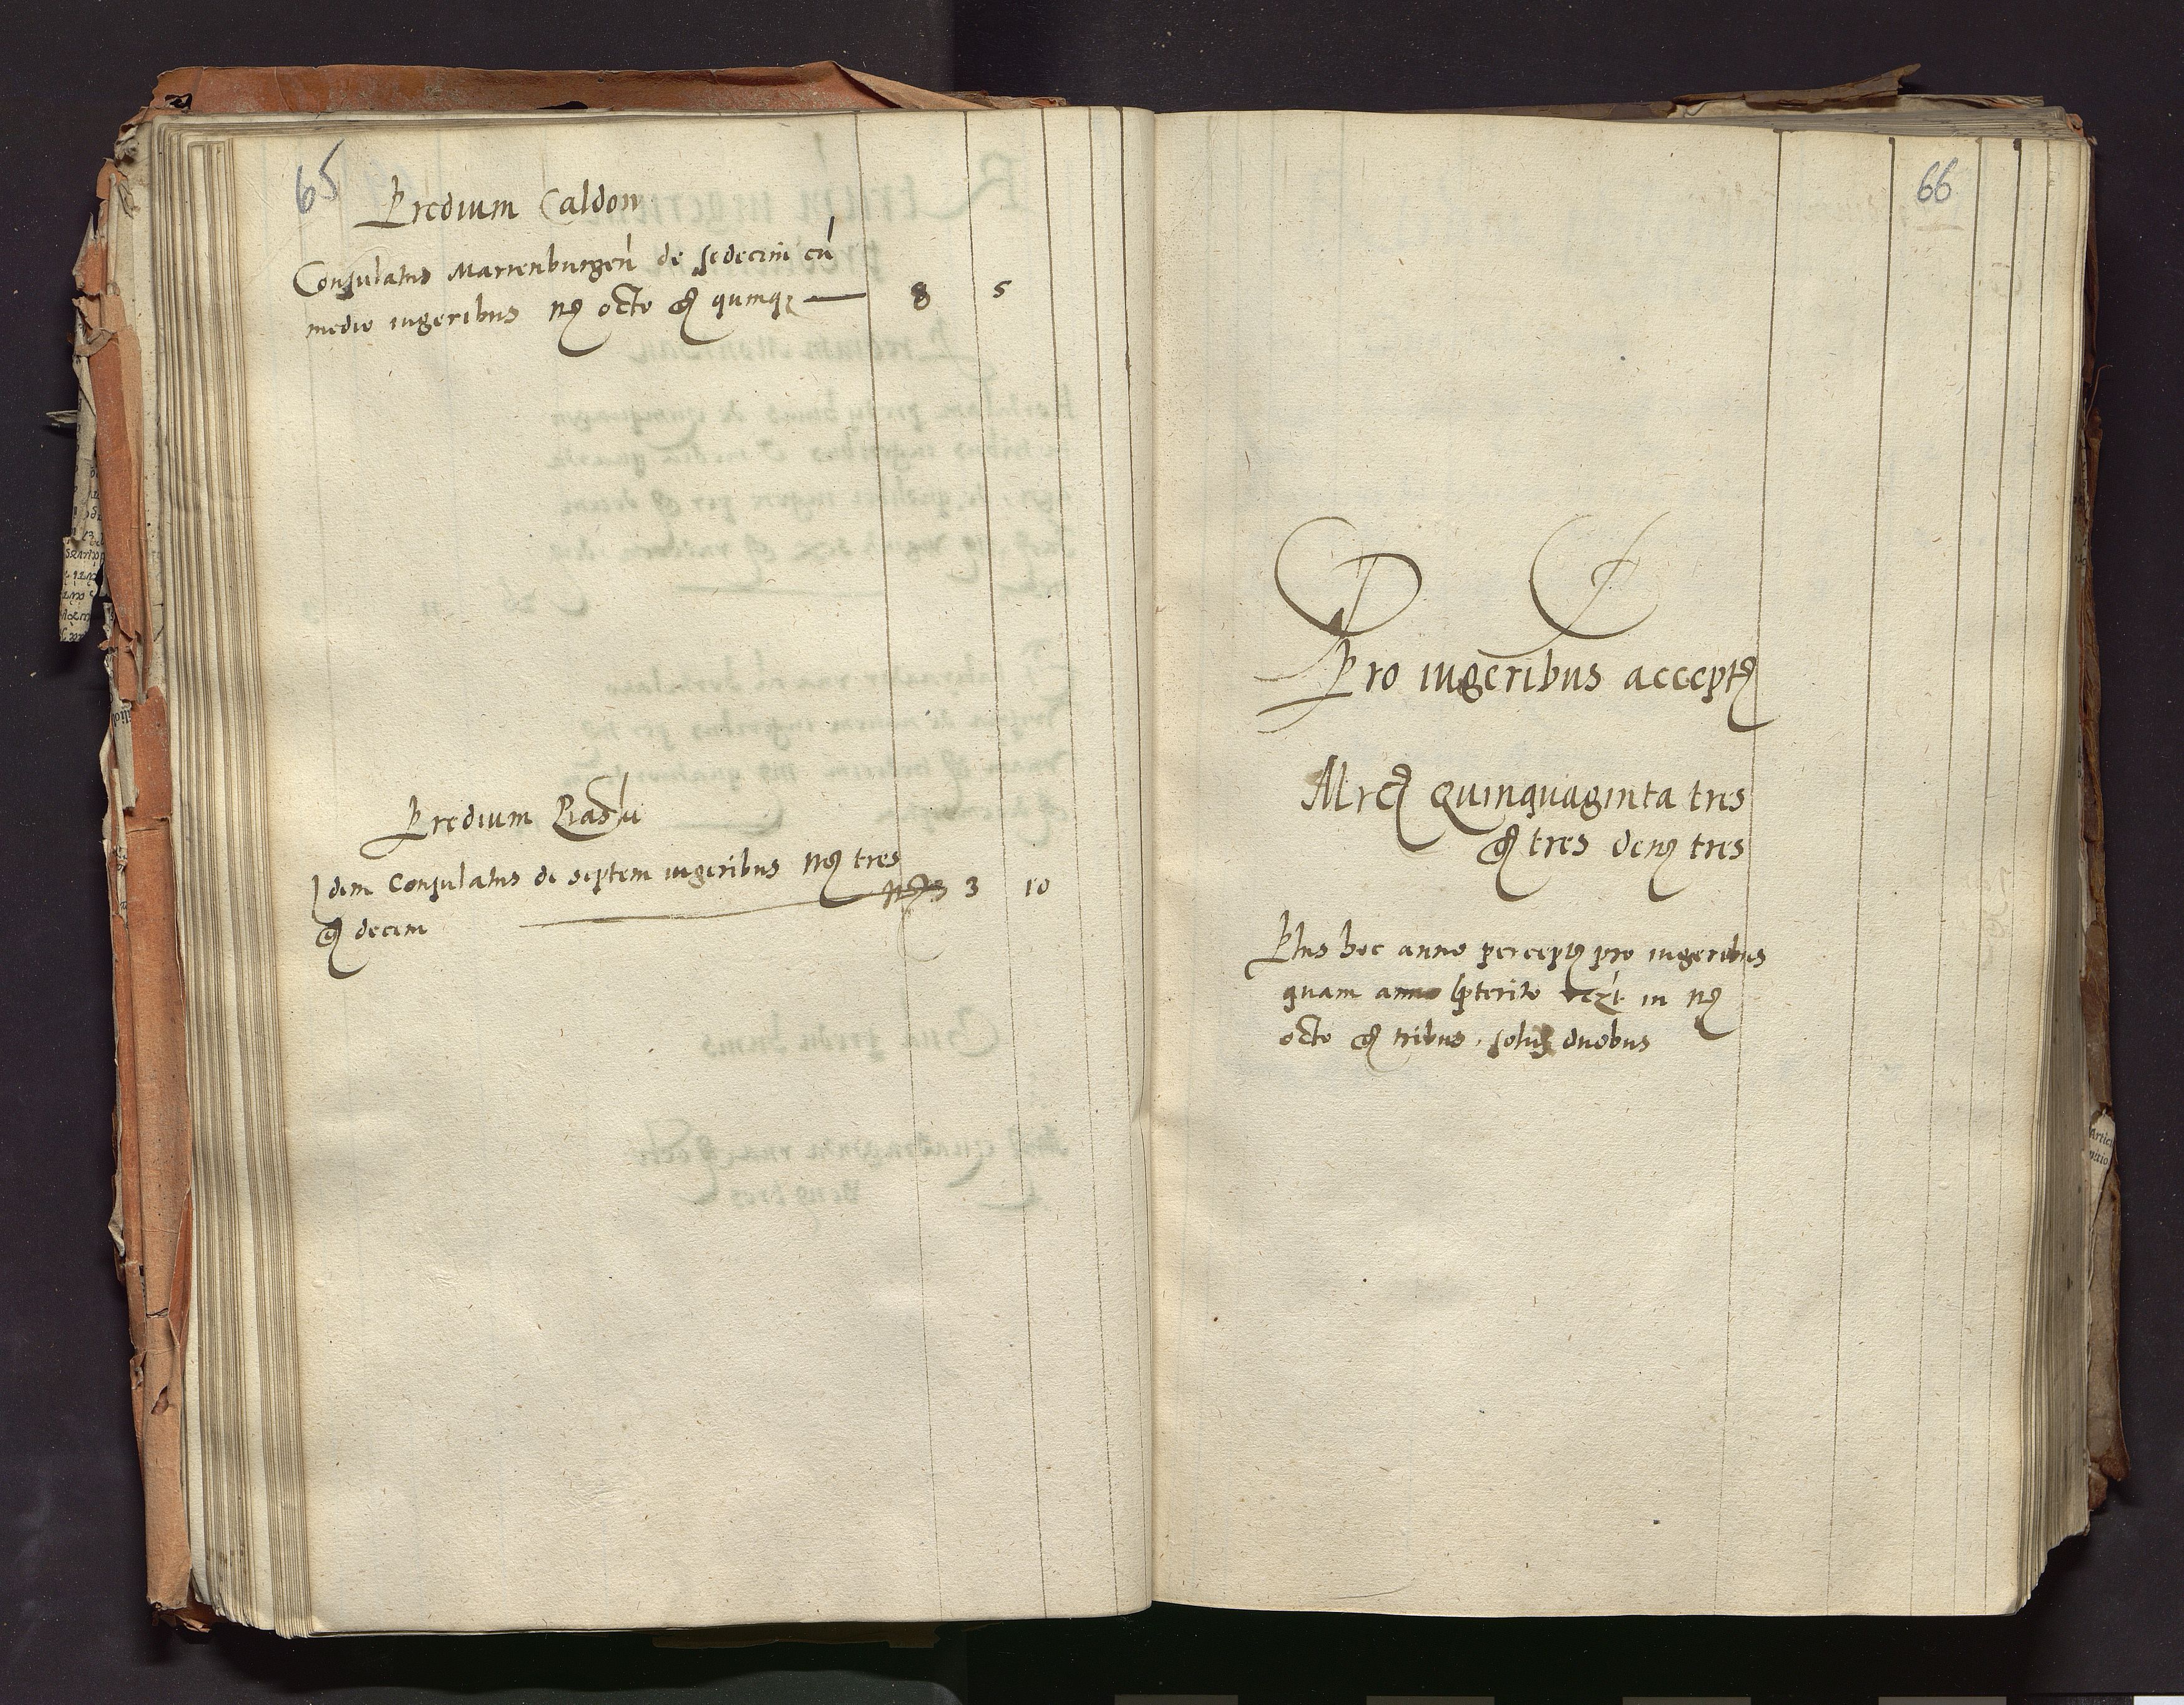 65
Predium Caldow
Consulatus Marienburgeń de sedecim cū
medio iugeribus mrc octo gr quinq 8 5
Predium
Idem Consulatus de septem iugeribus mrc tres
gr decem 3 10
66
Pro iugeribus accept
Mrc Quinquaginta tres
gr tres den tres
Plus hoc anno percept pro iugeribus
quam anno pterito in mrc
octo gr tribus, duobus